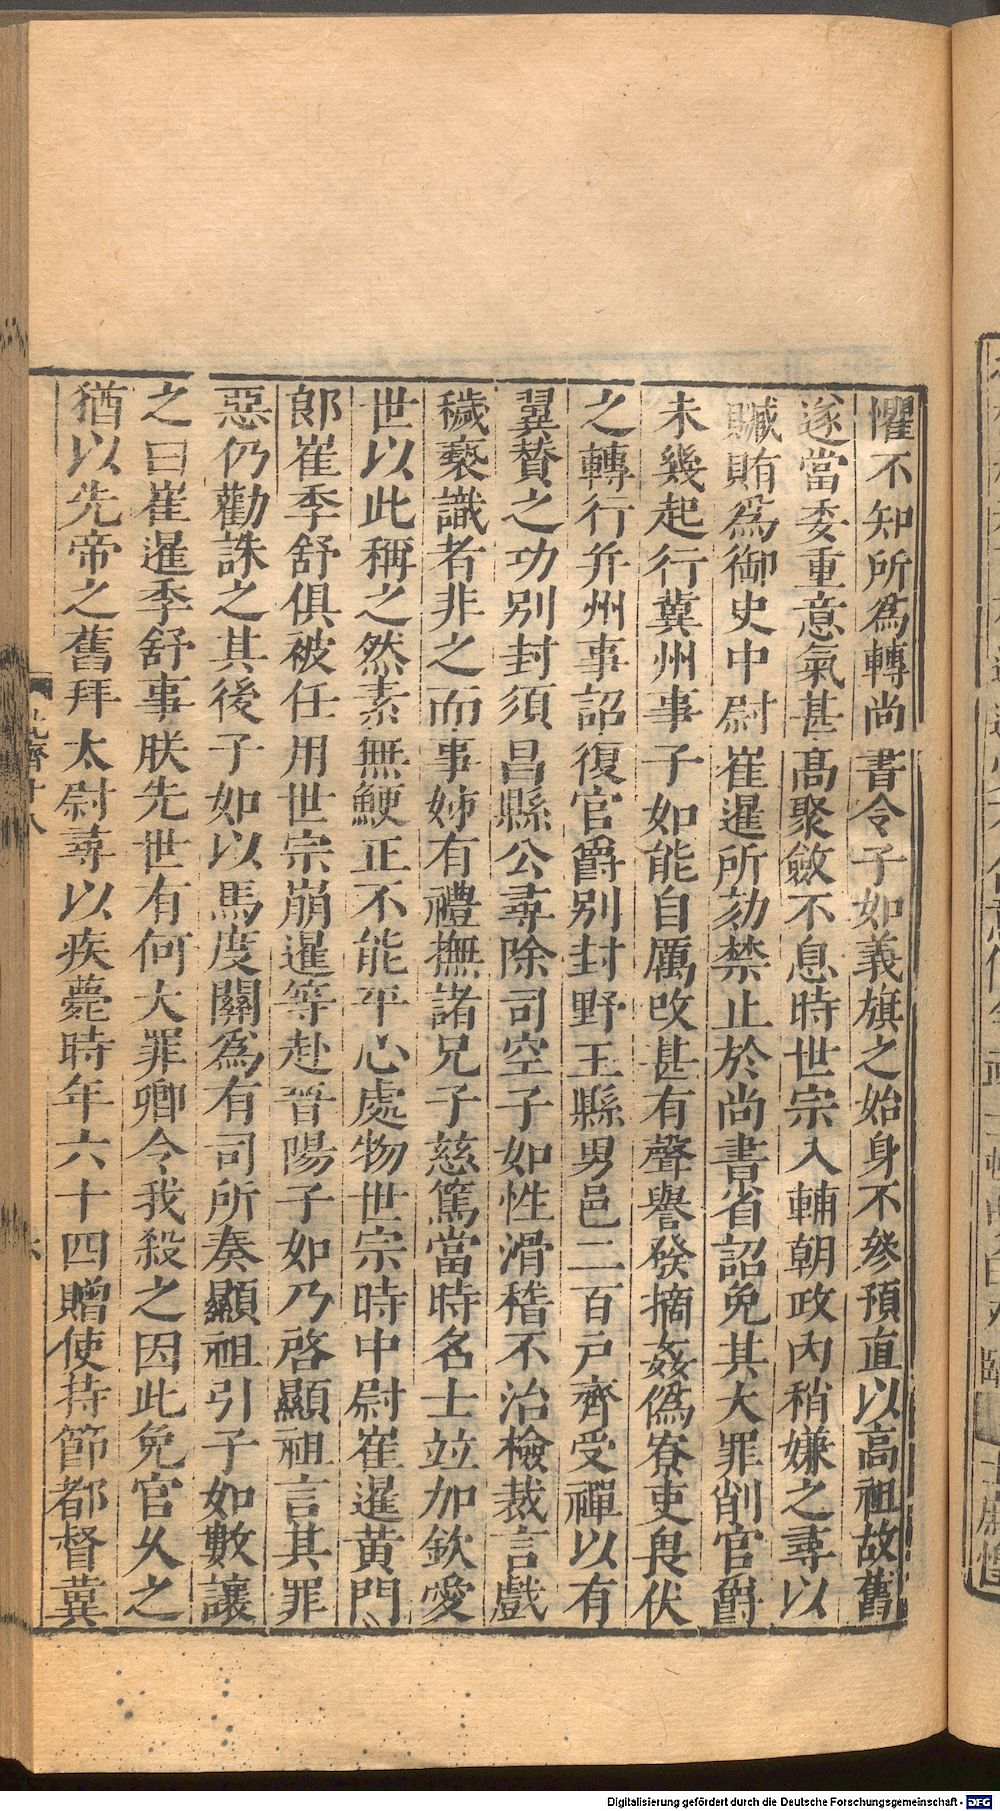 懼不知所爲轉尚書令子如義旗之始身不叅預直以高祖故舊
遂當委重意氣甚髙聚斂不息時世宗入輔朝政内稍嫌之尋以
贓賄爲御史中尉崔暹所劾禁止於尚書省詔免其大罪削官爵
未幾起行冀州事子如能自厲改甚有聲譽發摘姦僞寮吏畏伏
之轉行并州事詔復官爵别封野王縣男邑二百戸齊受禪以有
翼贊之功别封須昌縣公尋除司空子如性滑稽不治檢裁言戲
穢褻識者非之而事姊有禮撫諸兄子慈篤當時名士竝加欽愛
世以此稱之然素無鯁正不能平心處物世宗時中尉崔暹黄門
郎崔季舒俱被任用世宗崩暹等赴晉陽子如乃啓顯祖言其罪
惡仍勸誅之其後子如以馬度關爲有司所奏顯祖引子如數讓
之曰崔暹季舒事朕先世有何大罪卿令我殺之因此免官久之
猶以先帝之舊拜太尉尋以疾薨時年六十四贈使持節都督冀
北齊十八
Digitalisierung gefördert durch die Deutsche Forschungsgemeinschaft - DFG